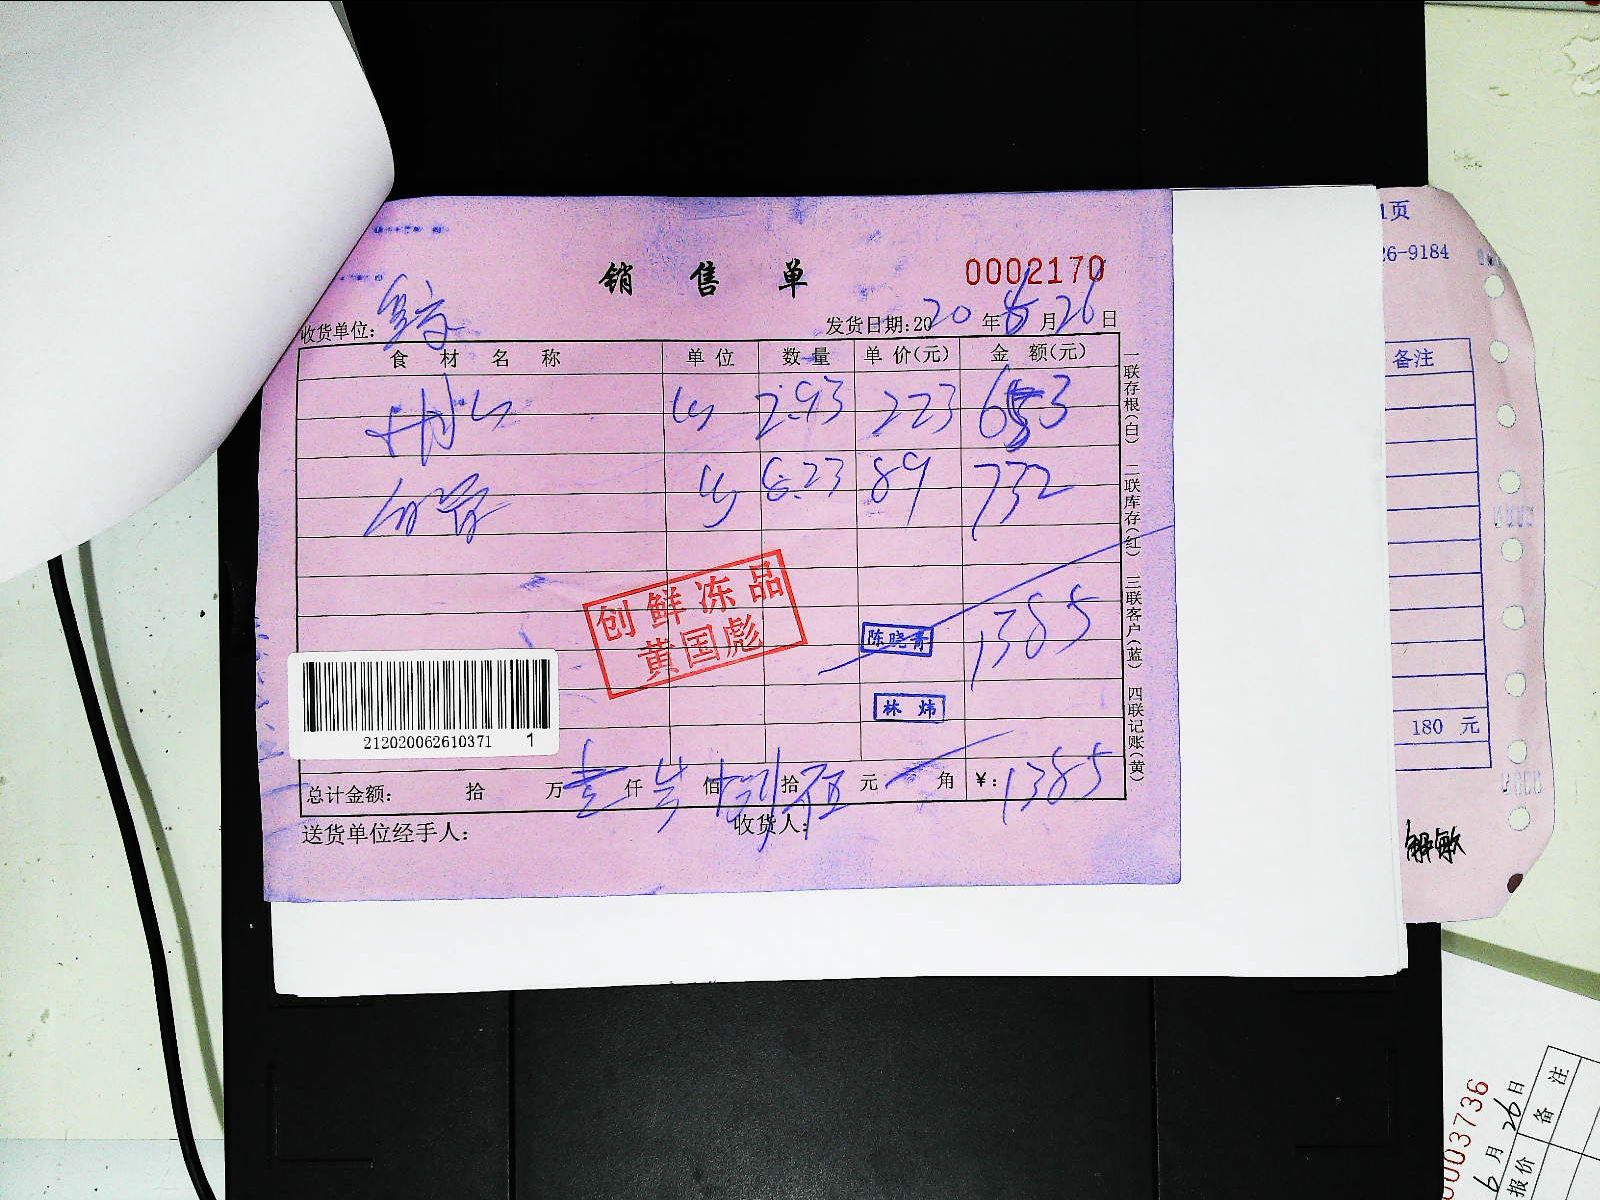 销售单
0002170
收货单位:
发货日期:2020年6月26日
食材名称 单位 数量 单价(元) 金额(元)
2.93 223 653
8.23 89 732
创鲜冻品
黄国彪
陈晓青
1385
林炜
212020062610371 1
总计金额: 拾 万壹仟叁佰捌拾伍元 角 ¥:1385
送货单位经手人: 收货人:
一联存根(白) 二联库存(红) 三联客户(蓝) 四联记账(黄)
1页
26-9184
备注
180 元
0003736
6月26日
报价 备注